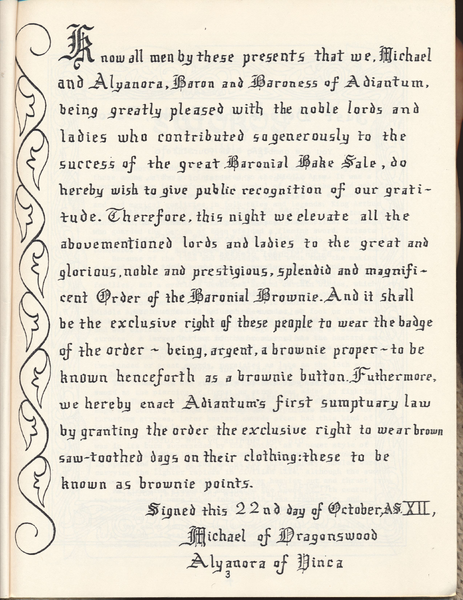 Know all men by these presents that we, Michael
and Alyanora, Baron and Baroness of Adiantum,
being greatly pleased with the noble lords and
ladies who contributed so generously to the
success of the great Baronial Bake Sale, do
hereby wish to give public recognition of our grati-
tude. Therefore, this night we elevate all the
abovementioned lords and ladies to the great and
glorious, noble and prestigious, splendid and magnifi-
cent Order of the Baronial Brownie. And it shall
be the exclusive right of these people to wear the badge
of the order ~ being, argent, a brownie proper ~ to be
known henceforth as a brownie button. Futhermore,
we hereby enact Adiantum's first sumptuary law
by granting the order the exclusive right to wear brown
saw-toothed dags on their clothing: these to be
known as brownie points.
Signed this 22nd day of October, A.S. XII,
Michael of Dragonswood
Alyanora of Vinca
3